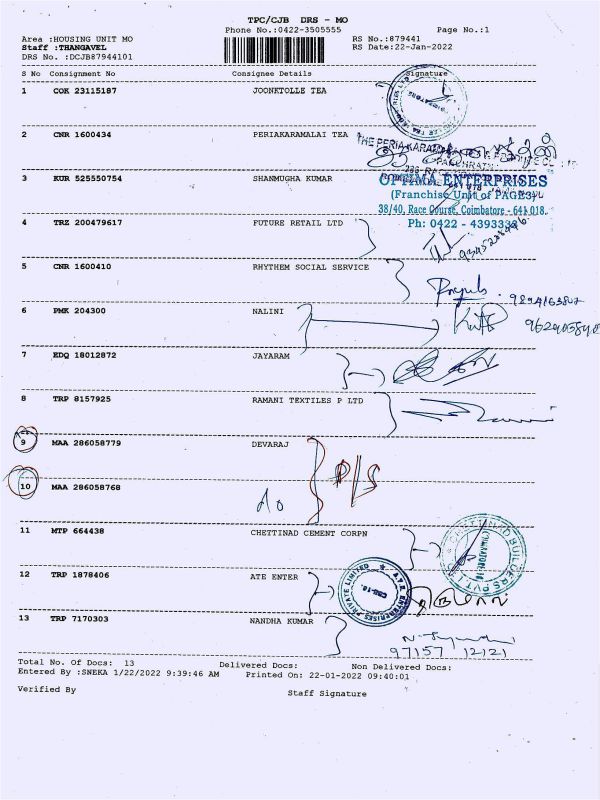 TPC/CJB DRS - MO
Phone No.:0422-3505555
Page No.:1
Area :HOUSING UNIT MO
RS No.:879441
Staff :THANGAVEL
RS Date:22-Jan-2022
DRS No. :DCJB87944101
S No Consignment No Consignee Details Signature
1 COK 23115187 JOONKTOLLE TEA
2 CNR 1600434 PERIAKARAMALAI TEA
3 KUR 525550754 SHANMUGHA KUMAR
OPTIMA ENTERPRISES
(Franchise Unit of PAGE3)
38/40, Race Course, Coimbatore - 641 018.
4 TRZ 200479617 FUTURE RETAIL LTD
Ph: 0422 - 4393333
5 CNR 1600410 RHYTHEM SOCIAL SERVICE
6 PMK 204300 NALINI
7 EDQ 18012872 JAYARAM
8 TRP 8157925 RAMANI TEXTILES P LTD
9 MAA 286058779 DEVARAJ
D/S
10 MAA 286058768 do
11 MTP 664438 CHETTINAD CEMENT CORPN
CHETTINAD BUILDERS PVT. LTD
12 TRP 1878406 ATE ENTER
A.T.E. ENTERPRISES PRIVATE LIMITED
13 TRP 7170303 NANDHA KUMAR
97157 12121
Total No. Of Docs: 13 Delivered Docs: Non Delivered Docs:
Entered By :SNEKA 1/22/2022 9:39:46 AM Printed On: 22-01-2022 09:40:01
Verified By Staff Signature